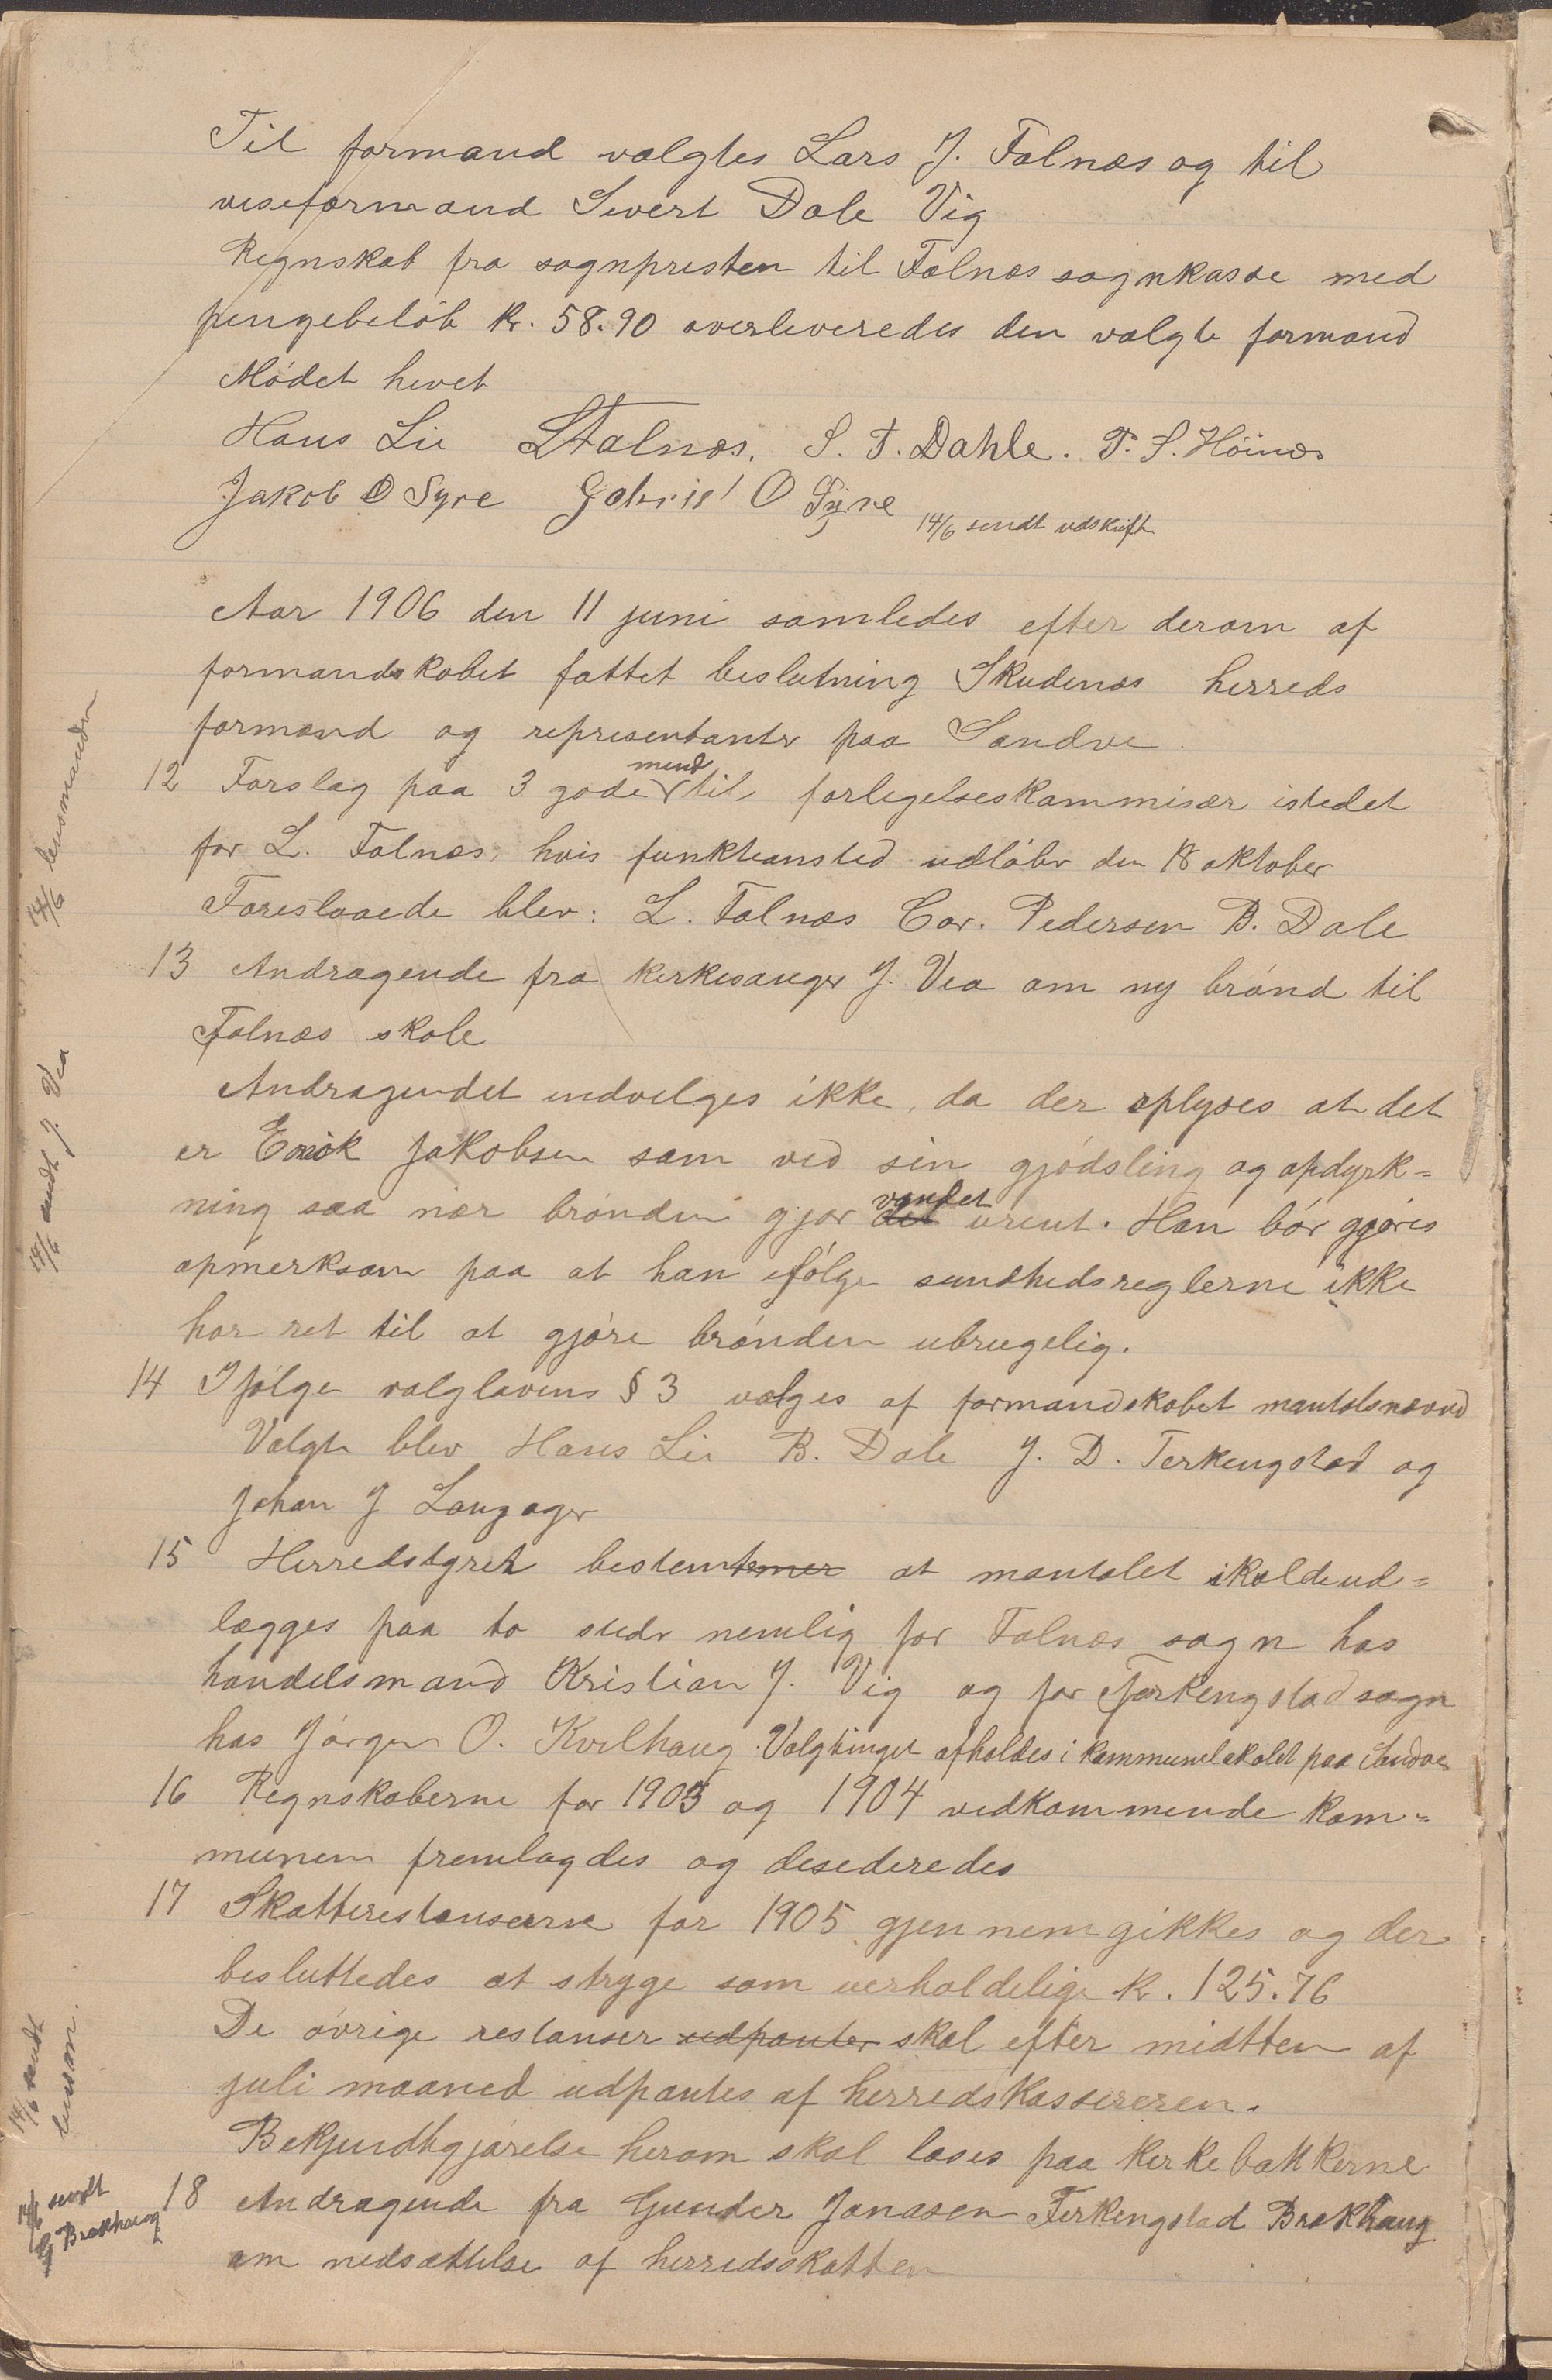 Til formand valgtes Lars J. Falnæs og til
viseformand Sivert Dale Vig
Regnskab fra sognpresten til Falnæs sognkasse med
pengebeløb kr. 58.90 overleveredes den valgte formand
Mødet hevet
Hans Lie LFalnæs. S. T. Dahle. T. S. Høines
Jakob O Syre Gabriel O Syre
14/6 sendt udskrift
Aar 1906 den 11 juni samledes efter derom af
formandskabet fattet beslutning Skudenæs herreds
formænd og representanter paa Sandve
12 Forslag paa 3 gode mend til forligelseskommisær istedet
for L. Falnæs, hvis funktionstid udløber den 18 oktober
Foreslaaede blev: L. Falnæs Cor. Pedersen B. Dale
14/6 lensmanden
13 Andragende fra kirkesanger J. Vea om ny brønd til
Falnæs skole
Andragendet indvilges ikke, da der oplyses at det
er Enok Jakobsen som ved sin gjødsling og opdyrk-
ning saa nær brønden gjør det vandet urent. Han bør gjøres
opmerksom paa at han ifølge sundhedsreglerne ikke
har ret til at gjøre brønden ubrugelig.
14/6 sendt J. Vea
14 Ifølge valglovens § 3 vælges af formandskabet mantalsnævnd
Valgte blev Hans Lie B. Dale J. D. Ferkengstad og
Johan J Langager
15 Herredstyret bestemtemer at mantalet skalde ud-
lægges paa to steder nemlig for Falnæs sogn hos
handelsmand Kristian J. Vig og for Ferkengstad sogn
hos Jørgen O. Kvilhaug. Valgtinget afholdes i kommunelokalet paa Sandve
16 Regnskaberne for 1903 og 1904 vedkommende kom-
munen fremlagdes og desideredes
17 Skatterestanserne for 1905 gjennemgikkes og der
besluttedes at stryge som uerholdelige kr. 125.76
De øvrige restanser udpanter skal efter midtten af
juli maaned udpantes af herredskassereren.
Bekjendtgjørelse herom skal læses paa kirkebakkerne
14/6 sendt
lensm.
18 Andragende fra Gunder Jonasen Ferkengstad Brekhaug
om nedsættelse af herredsskatten
14/6 sendt
G Brekhaug